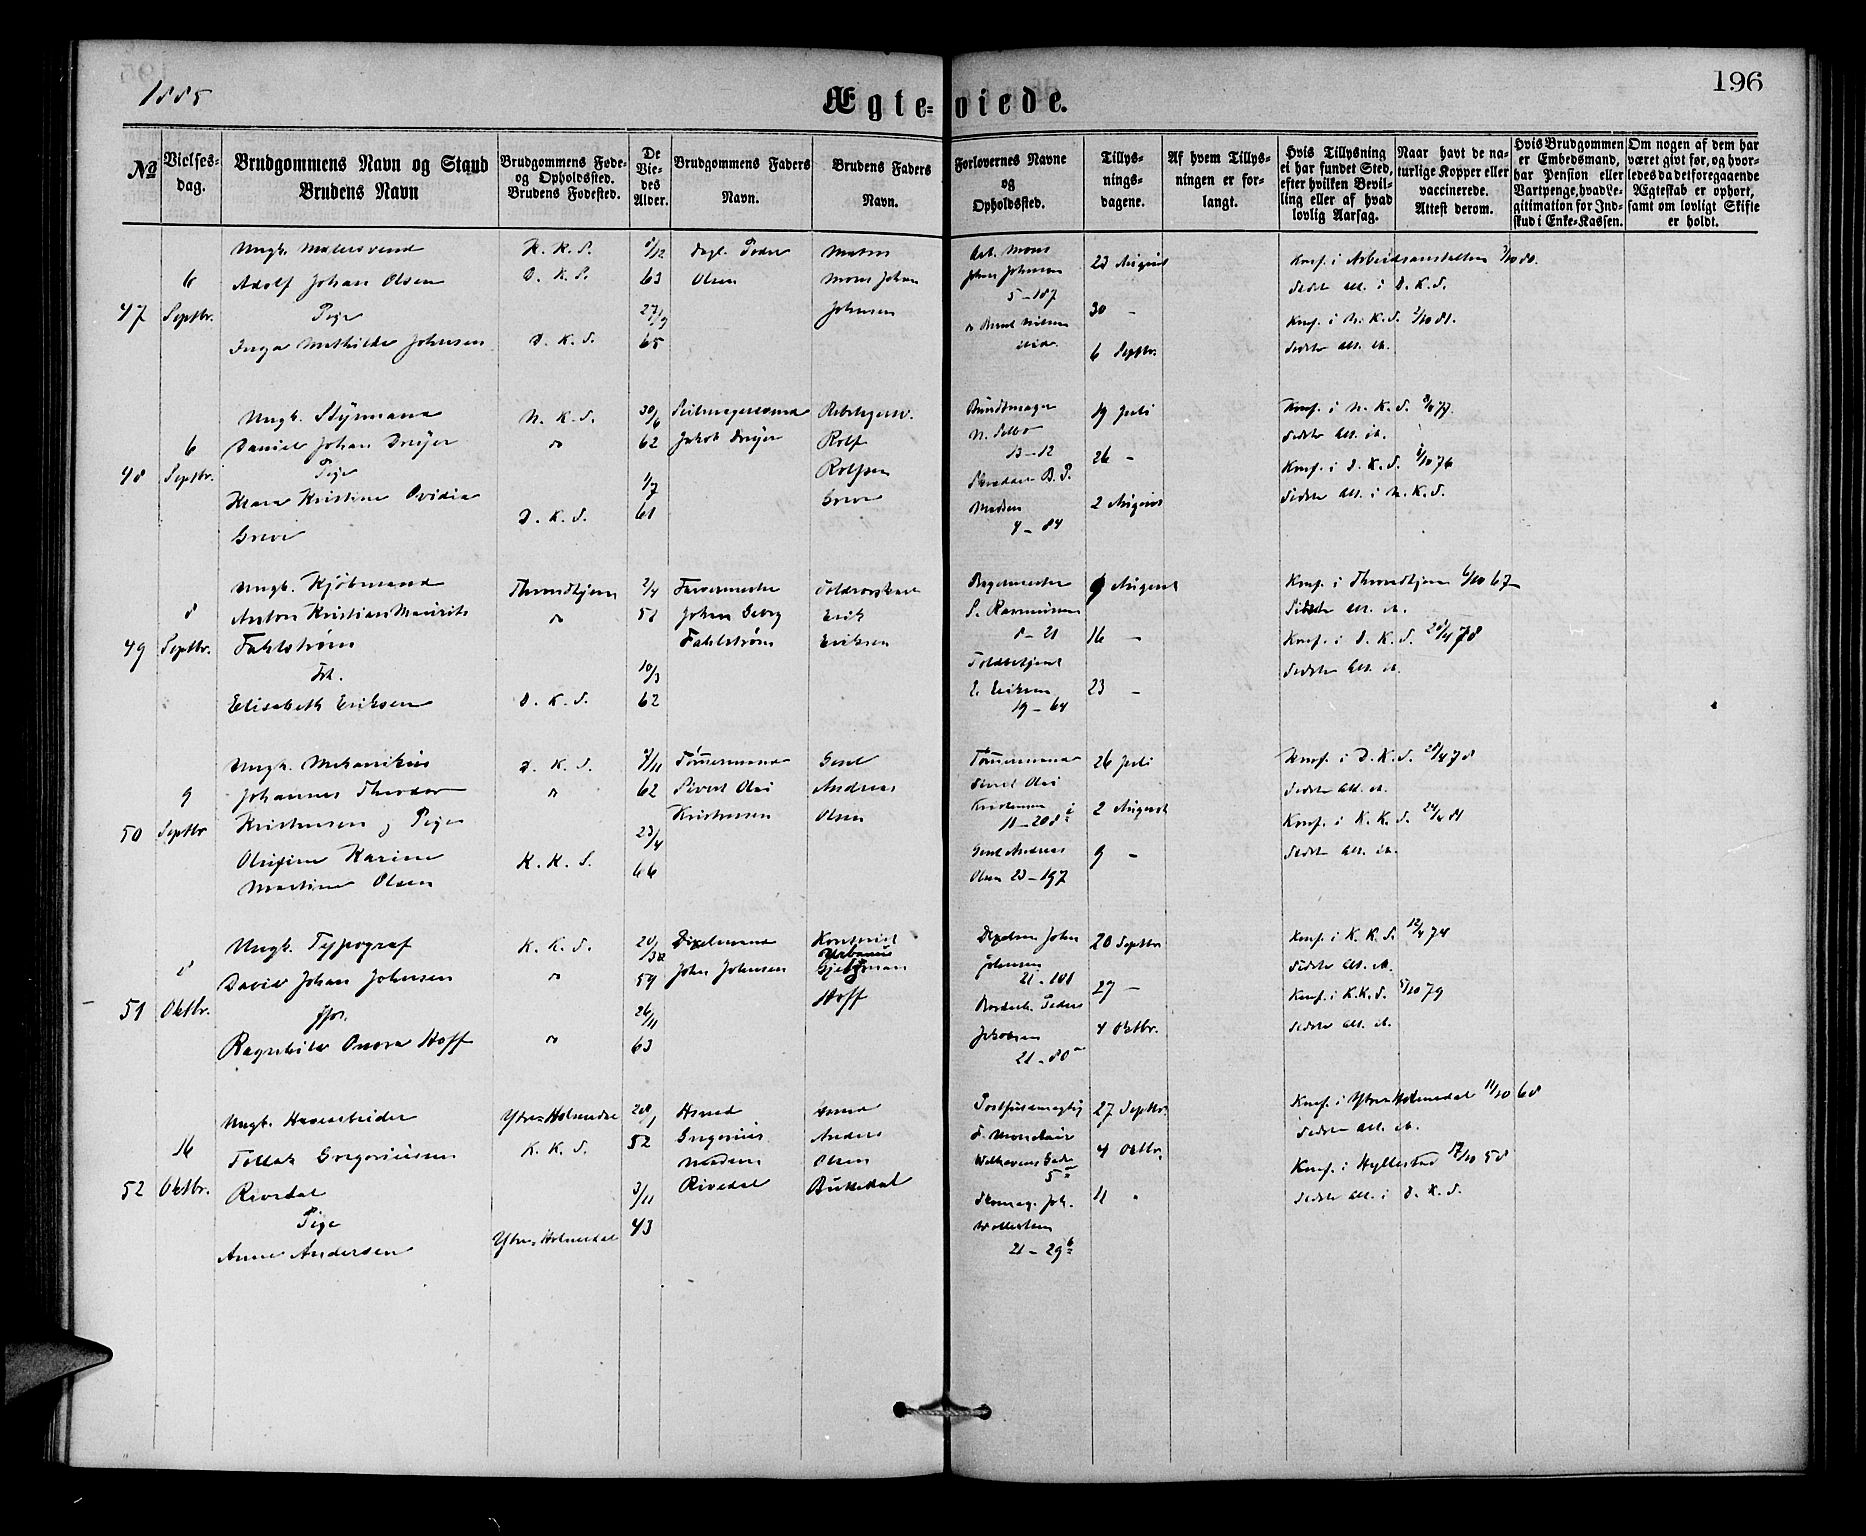 1885
196
Ægte-viede.
No
Vielses-
dag.
Brudgommens Navn og Stand
Brudens Navn
Brudgommens Føde-
og Opholdssted.
Brudens Fødested.
De
Vie-
des
Alder.
Brudgommens Faders
Navn.
Brudens Faders
Navn.
Forlovernes Navne
og
Opholdssted.
Tillys-
nings-
dagene.
Af hvem Tillys-
ningen er for-
langt.
Hvis Tillysning
ei har fundet Sted,
efter hvilken Bevil-
ling eller af hvad
lovlig Aarsag.
Naar havt de na-
turlige Kopper eller
vaccinerede.
Attest derom.
Hvis Brudgommen
er Embedsmand,
har Pension eller
Vartpenge, hvad Le-
gitimation for Ind-
skud i Enke-Kassen.
Om nogen af dem har
været givt før, og hvor-
ledes da det foregaaende
Ægteskab er ophørt,
samt om lovligt Skifte
er holdt.
47
6
Septbr.
Ungk. Malersvend
Adolf Johan Olsen
Pige
Inga Mathilde Johnsen
K. K. S.
D. K. S.
D. K. S.
8/12
63
27/9
65
Dagl. Peder
Olsen
Matros
Mons Johan
Johnsen
Arb. Mons
Johan Johnsen
5-187
23 August
30 -
6 Septbr.
Konf. i Arbeidsanstalten
Sidste Alt. i D. K. S.
Konf. i N. K. S. 2/10 81.
Sidste Alt. it.
48
6
Septbr.
Ungk. Styrmand
Daniel Johan Dreyer
Pige
Klara Kristine Ovidia
Greve
N. K. S.
"
D. K. S.
30/6
62
1/7
61
Seilmagersvend
Jakob Dreyer
Rebslagersv.
Rolf
Rolfsen
Greve
Bundtmager
N. Selbo
13-12
Skrædder B. P.
Madsen
4-84
19 Juli
26 -
2 August
Konf. i N. K. S.
Sidste Alt. it.
Konf. i D. K. S. 1/10 76
Sidste Alt. i N. K. S.
49
8
Septbr.
Ungk. Kjøbmand
Anton Kristian Maurits
Fahlstrøm
Frk.
Elisabeth Eriksen
Throndhjem
"
D. K. S.
2/4
51
10/3
62
Farvermester
Johan Georg
Fahlstrøm
Erik
Eriksen
Bagermester
S. Rasmussen
8-21
E. Eriksen
19-64
9 August
16 -
23 -
Konf. i Throndhjem 6/10 67
Sidste Alt. it.
Konf. i D. K. S. 28/4 78
Sidste Alt. it.
50
9
Septbr
Ungk. Mekanikus
Johannes Theodor
Kristensen Pige
Olufine Karine
Martine Olsen
D. K. S.
"
K. K. S.
8/11
62
23/4
66
Tømmermand
Sivert Olai
Kristensen
Gesel
Andreas
Olsen
Tømmermand
Sivert Olai
Kristensen
Gesel Andreas
Olsen 23-197
26 Juli
2 August
9 -
Konf. i D. K. S. 28/4 78
Sidste Alt. it.
Konf. i K. K. S. 24/4 81
Sidste Alt. it.
51
8
Oktbr.
Ungk. Typograf
David Johan Johnsen
Ragnhild Onora Hoff
K. K. S.
"
"
59
26/11
63
Dixelmand
John Johnsen
Hoff
Dixelm. John
Johnsen
21-101
Peder
Jakobsen
21-80
20 Septbr
27 -
4 Oktbr.
Konf. i K. K. S. 12/4 74
Sidste Alt. it.
Konf. i K. K. S. 5/10 79
Sidste Alt. it.
52
16
Oktbr.
Ungk. Havearbeider
Tollak Gregoriussen
Rivedal
Pige
Anne Andersen
Ytre-Holmedal
K. K. S.
Ytre-Holmedal
28/1
52
3/11
43
Hsmd
Gregorius
Madsen
Rivedal
Hsmd
Anders
Olsen
Welhavens Gade
5
Skomag. Joh.
21-29
27 Septbr.
4 Oktbr.
11 "
Konf. i Ytre-Holmedal 11/10 68
Sidste Alt. it.
Konf. i Hyllestad 17/10 58
Sidste Alt. i D. K. S.